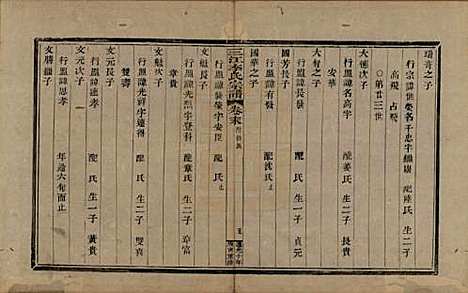 瑞奇之子
行宗諱榮名千忠字繼康 配陸氏 生二子
高飛 占飛
○第廿三世
大德次子
行凰諱名高字 配姜氏 生二子 長貴
安華
大有之子
行凰諱 配氏 生一子 貞元
國芳長子
行凰諱有發 配沈氏
國華之子
行凰諱發榮字安臣 配氏 止
三江李氏宗譜 卷末
文魁長子
行凰諱光 字登科 配章氏 生二子 章富
章貴
文魁次子
行凰諱光祥字遠得 配氏 生二子 雙喜
雙壽
文元次子
行凰諱連孝 配氏 生一子 黃貴
文勝繼子
行凰諱思孝 年過六旬而止